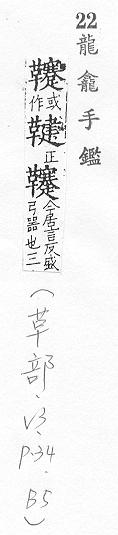 22 龍龕手鑑
或作 鞬 正 今居言反盛弓器也三
(草部、V3、P.34、B5)